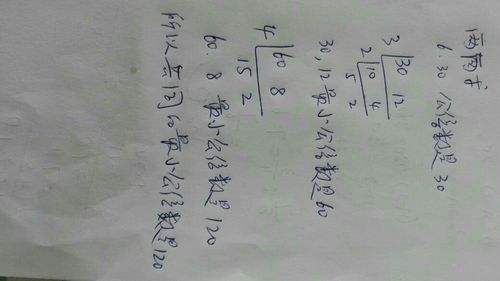 两两求
6.30 公倍数是30
3 30 12
2 10 4
5 2
30,12最小公倍数是60
4 60 8
15 2
60.8 最小公倍数是120
所以 的最小公倍数是120